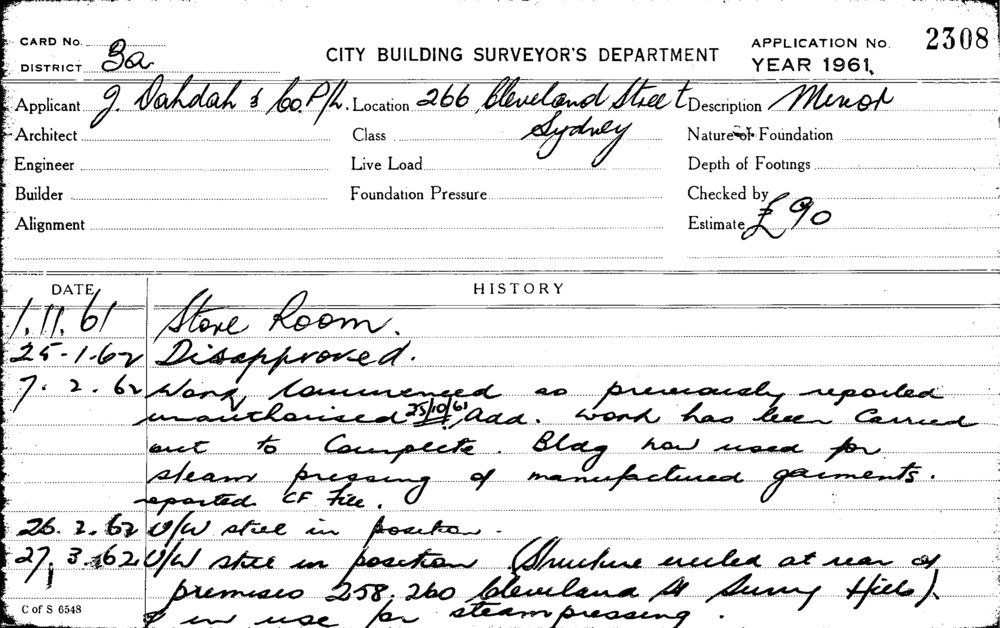 CARD No.
DISTRICT 3a
CITY BUILDING SURVEYOR'S DEPARTMENT
APPLICATION No. 2308
YEAR 1961
Applicant J. Dahdah & Co. P/L. Location 266 Cleveland Street Description Minor
Sydney
Architect Class Nature of Foundation
Engineer Live Load Depth of Footings
Builder Foundation Pressure Checked by
Alignment Estimate £90
DATE HISTORY
1.11.61 Store Room.
25-1-62 Disapproved.
7.2.62 Work commenced as previously reported
unauthorised 25/10/61, Add. work has been Carried
out to Complete. Bldg now used for
steam pressing of manufactured garments.
reported CF File.
26.2.62 U/W still in position.
27.3.62 U/W still in position (Structure erected at rear of
premises 258.260 Cleveland St Surry Hills).
& in use for steampressing.
C of S 6548